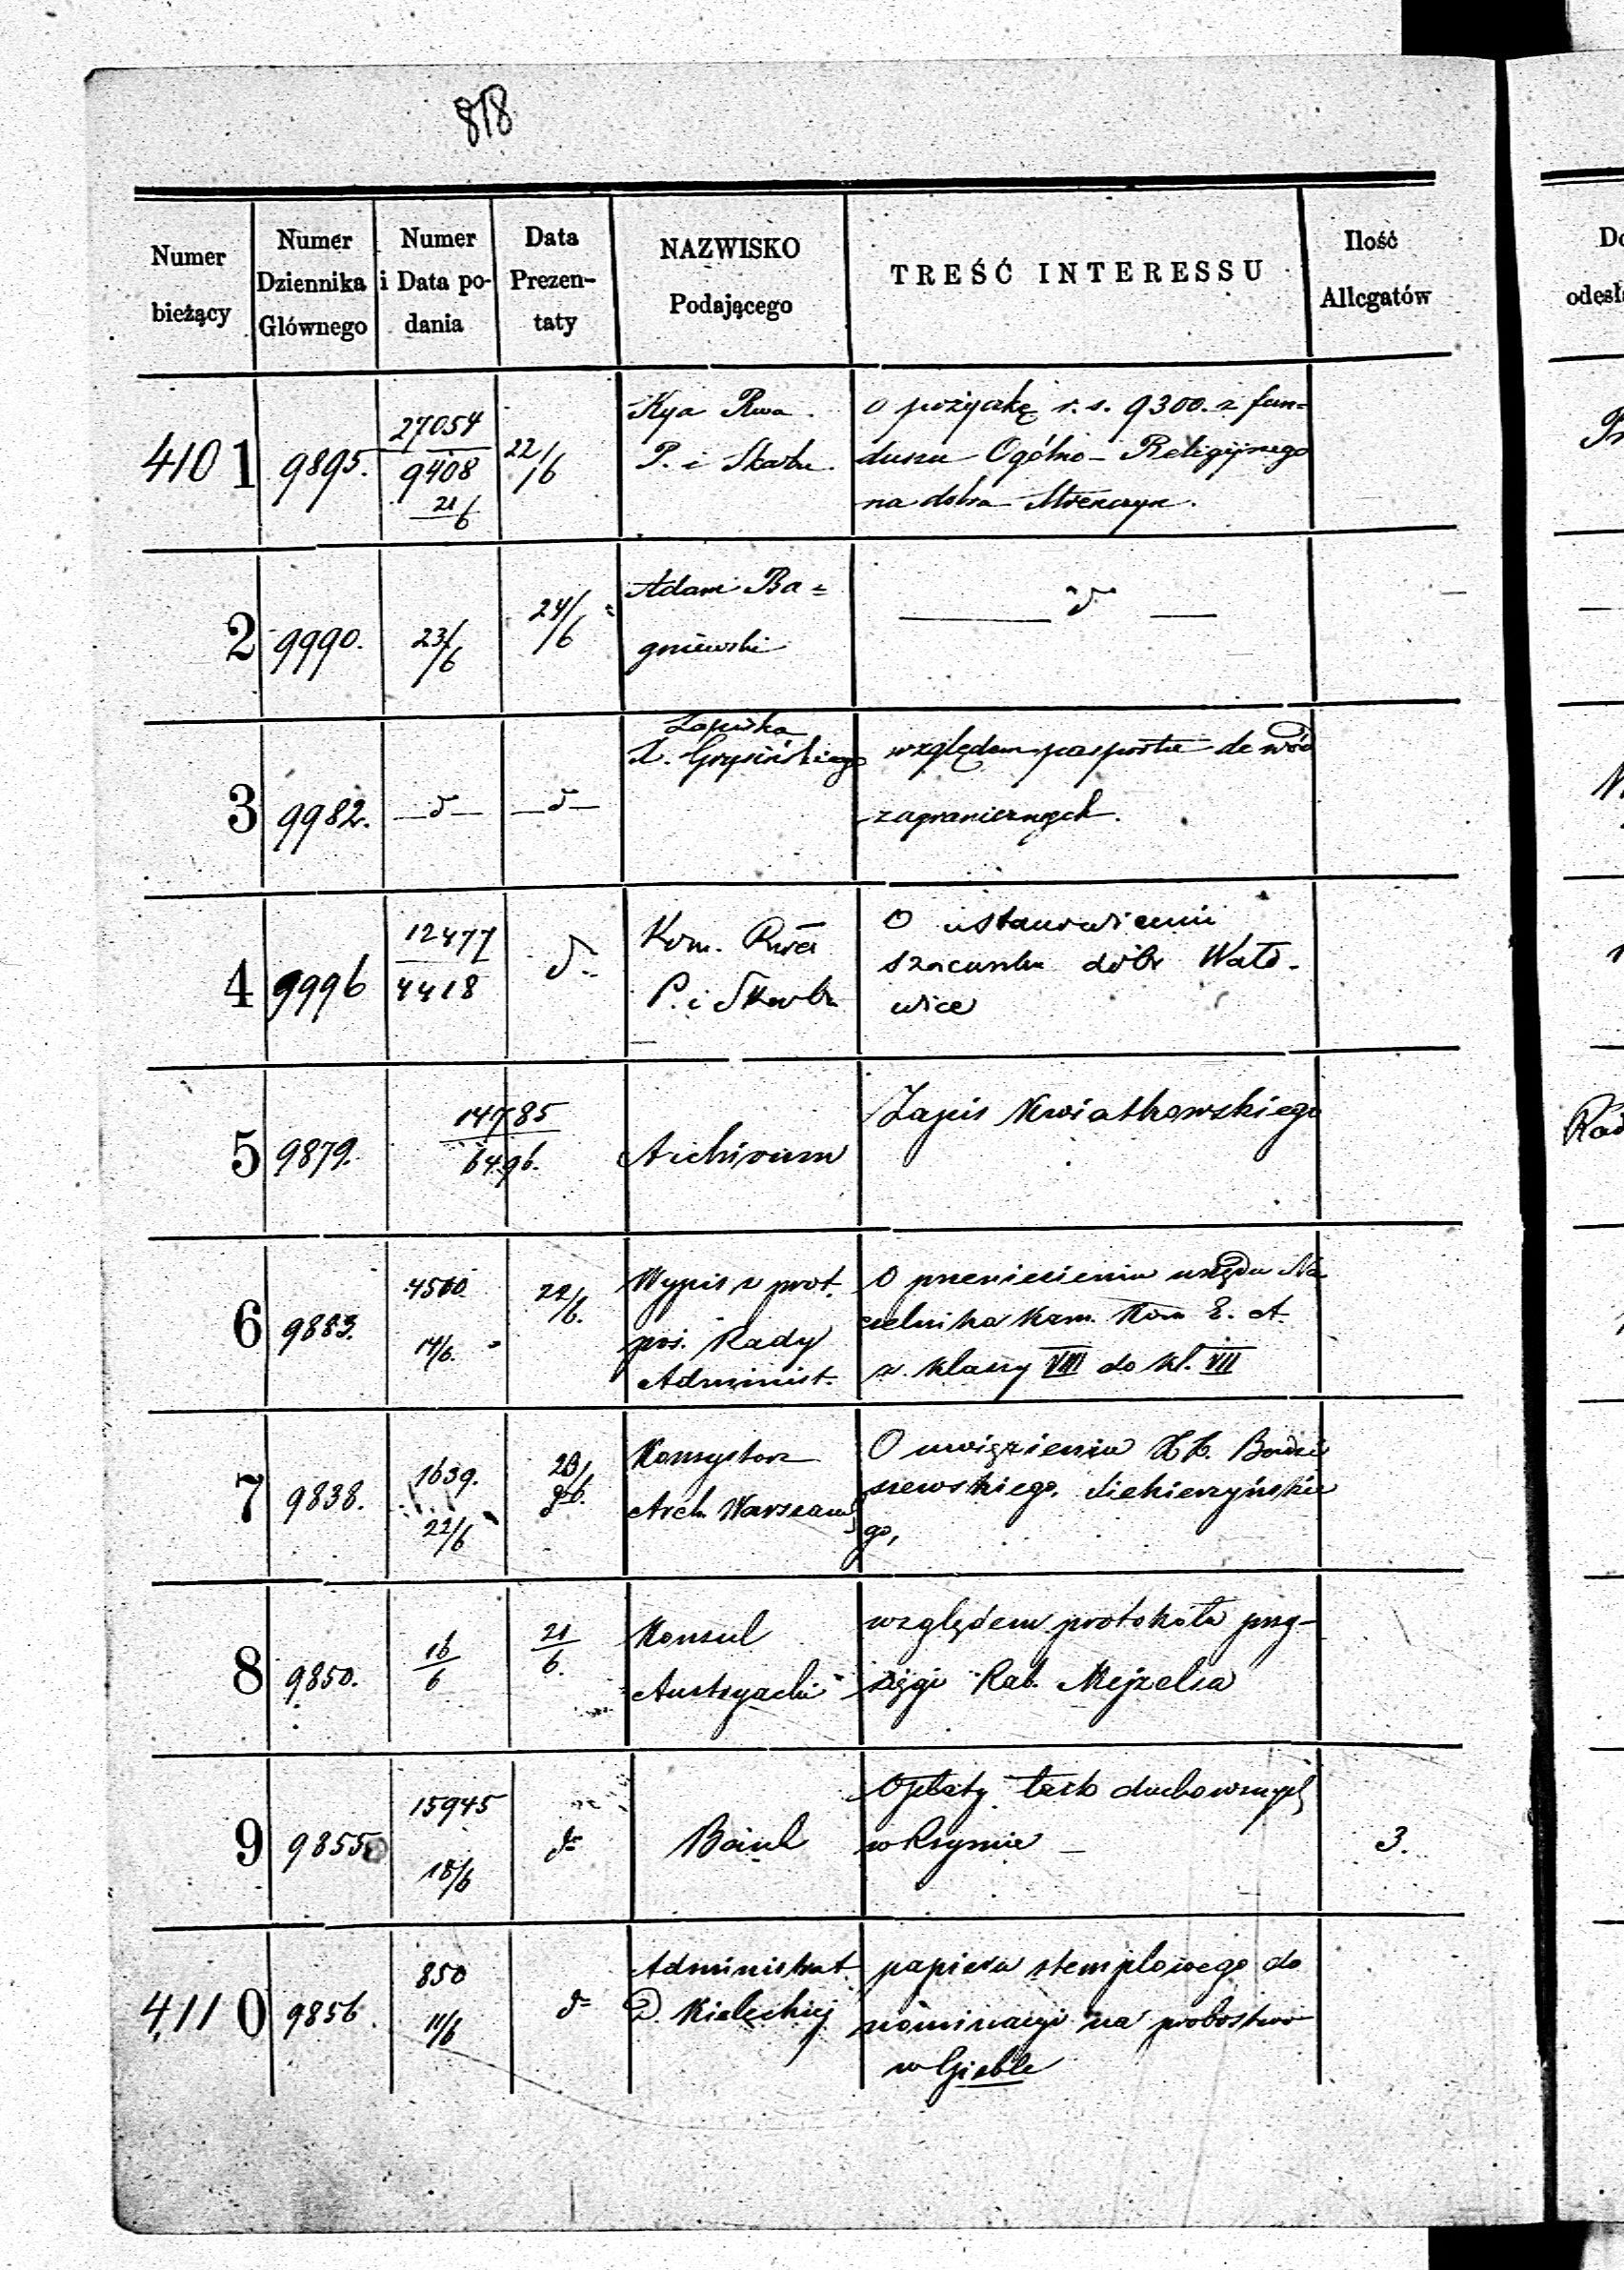 818
Numer bieżący
Numer Dziennika Głównego
Numer i Data podania
Data Prezentaty
NAZWISKO Podającego
TREŚĆ INTERESSU
Ilość Allegatów
4101 9895. 27054 / 9408 21/6 22/6
Kya Rwa
P. i Skarbu.
o pożyczkę r. s. 9300. z fun=
duszu Ogólno-Religijnego
na dobra
2 9990. 23/6 24/6
Adam Ba=
gniewski
d°
3 9982. d° d°
Zapiska
względem pasportu do wód
zagranicznych.
4 9996 12477 / 4418 d°
Kom. Rwa
P. i Skarbu
O ustanowieniu
szacunku dóbr Wato-
wice
5 9879. 14785 / 6496.
Archivum
Zapis Kwiatkowskiego
6 9883. 4500 14/6. 22/6.
Wypis z prot.
pos. Rady
Administ.
O przeniesieniu urzędu Na
czelnika Kam. Kom E. A.
z klassy VIII do kl. VII
7 9838. 1639. 22/6
Konsystorz
Arch. Warszaws
O uwięzieniu XX.
szewskiego, Siekierzyńskie
go,
8 9850. 16/6 21/6.
Konsul
Austryacki
względem protokołu przy-
sięgi Rab. Mejzelsa
9 9855 15945 18/6 d°
Bank
Opłaty task duchownych
w Rzymie
3.
4,110 9856. 850 11/6 d°
Administrat.
D. Kieleckiej
papieru stemplowego do
nominacyi na probostwo
w Gieble